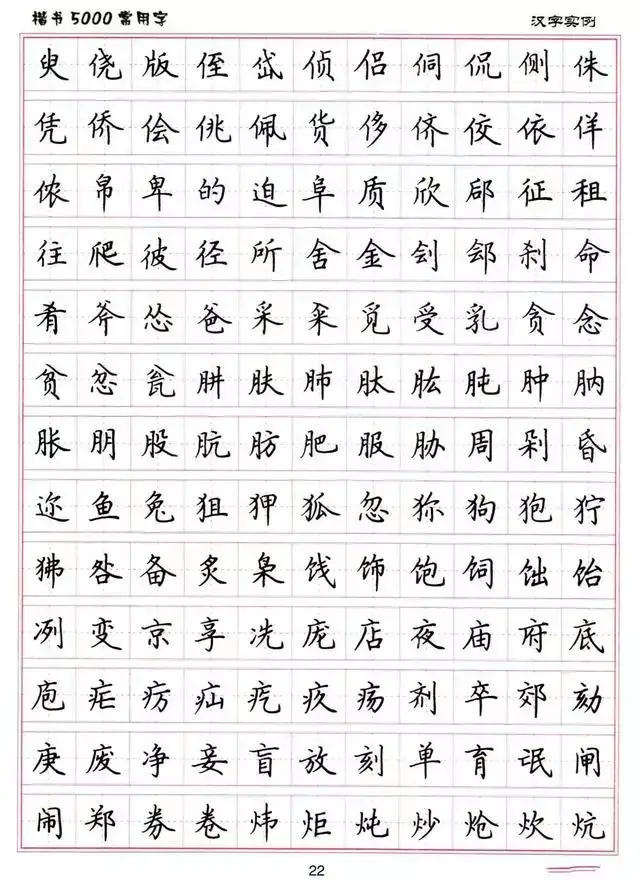 楷书5000常用字
汉字实例
臾侥版侄岱侦侣侗侃侧侏
凭侨侩佻佩货侈侪佼依佯
侬帛卑的迫阜质欣郈征徂
往爬彼径所舍金刽郐刹命
肴斧怂爸采籴觅受乳贪念
贫忿瓮肼肤肺肽肱肫肿肭
胀朋股肮肪肥服胁周剁昏
迩鱼兔狙狎狐忽狝狗狍狞
狒咎备炙枭饯饰饱饲饳饴
冽变京享冼庞店夜庙府底
庖疟疠疝疙疚疡剂卒郊劾
庚废净妾盲放刻单育氓闸
闹郑券卷炜炬炖炒炝炊炕
22